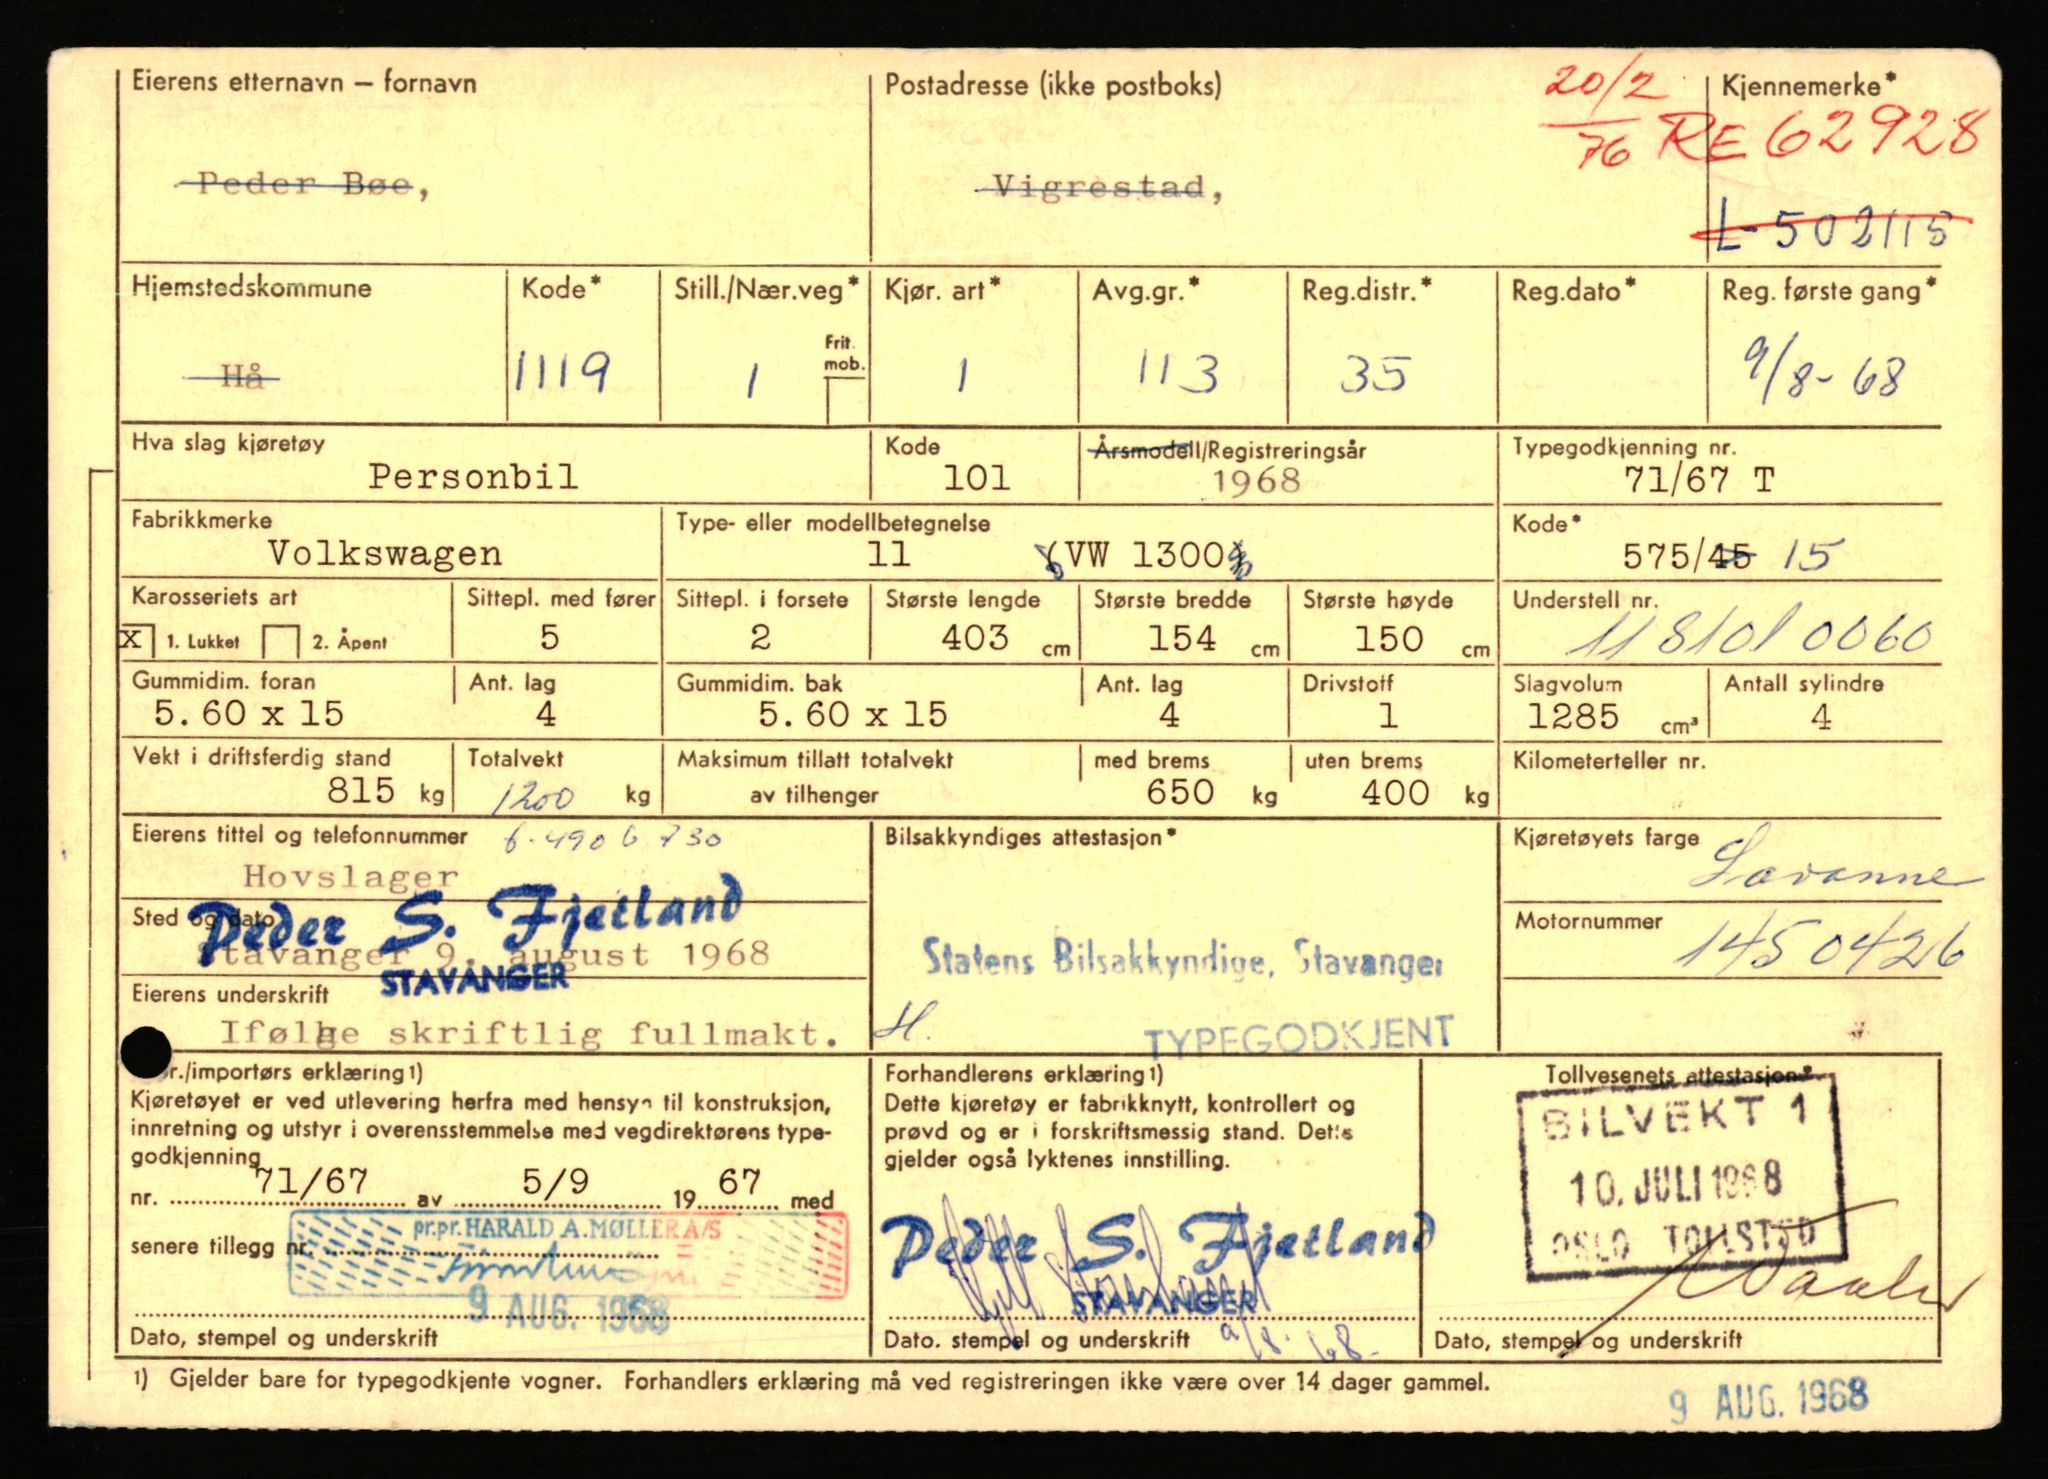 Eierens etternavn — fornavn
Peder Bøe,
Postadresse (ikke postboks)
Vigrestad,
20/2
76
Kjennemerke*
RE 62928
L-502115
Hjemstedskommune
Hå
Kode*
1119
Still./Nær.veg*
1
Frit. mob.
Kjør. art*
1
Avg.gr.*
113
Reg.distr.*
35
Reg.dato*
Reg. første gang*
9/8-68
Hva slag kjøretøy
Personbil
Kode
101
Årsmodell/Registreringsår
1968
Typegodkjenning nr.
71/67 T
Fabrikkmerke
Volkswagen
Type- eller modellbetegnelse
11 (VW 1300)
Kode*
575/45 15
Karosseriets art
X 1. Lukket 2. Åpent
Sittepl. med fører
5
Sittepl. i forsete
2
Største lengde
403 cm
Største bredde
154 cm
Største høyde
150 cm
Understell nr.
118101 0060
Gummidim. foran
5.60 x 15
Ant. lag
4
Gummidim. bak
5.60 x 15
Ant. lag
4
Drivstoff
1
Slagvolum
1285 cm³
Antall sylindre
4
Vekt i driftsferdig stand
815 kg
Totalvekt
1200 kg
Maksimum tillatt totalvekt
av tilhenger
med brems
650 kg
uten brems
400 kg
Kilometerteller nr.
Eierens tittel og telefonnummer
f. 490 6 730
Hovslager
Bilsakkyndiges attestasjon*
Kjøretøyets farge
Savanne
Sted og dato
Stavanger 9. august 1968
Peder S. Fjetland
STAVANGER
Statens Bilsakkyndige, Stavanger
H.
TYPEGODKJENT
Motornummer
1450426
Eierens underskrift
Ifølge skriftlig fullmakt.
r./importørs erklæring 1)
Kjøretøyet er ved utlevering herfra med hensyn til konstruksjon,
innretning og utstyr i overensstemmelse med vegdirektørens type-
godkjenning
nr. 71/67 av 5/9 19 67 med
senere tillegg nr.
pr.pr. HARALD A. MØLLER A/S
9 AUG. 1968
Dato, stempel og underskrift
Forhandlerens erklæring 1)
Dette kjøretøy er fabrikknytt, kontrollert og
prøvd og er i forskriftsmessig stand. Dette
gjelder også lyktenes innstilling.
Peder S. Fjetland
STAVANGER
9/8-68-
Dato. stempel og underskrift
Tollvesenets attestasjon*
BILVEKT 1
10. JULI 1968
OSLO TOLLSTED
Dato, stempel og underskrift
1) Gjelder bare for typegodkjente vogner. Forhandlers erklæring må ved registreringen ikke være over 14 dager gammel.
9 AUG. 1968